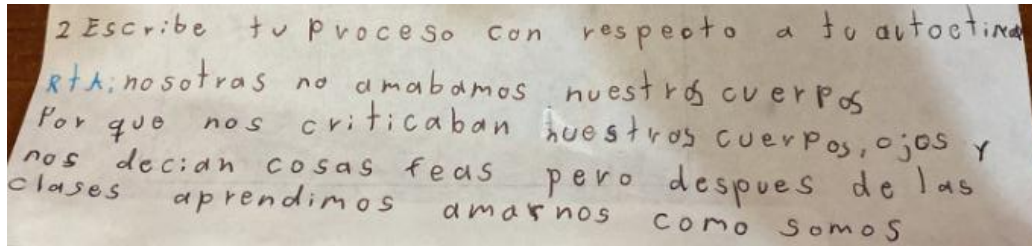 2 Escribe tu proceso con respecto a tu autoctima
RtA: nosotras no amabamos nuestros cuerpos
Por que nos criticaban nuestros cuerpos, ojos y
nos decian cosas feas pero despues de las
clases aprendimos amarnos como somos